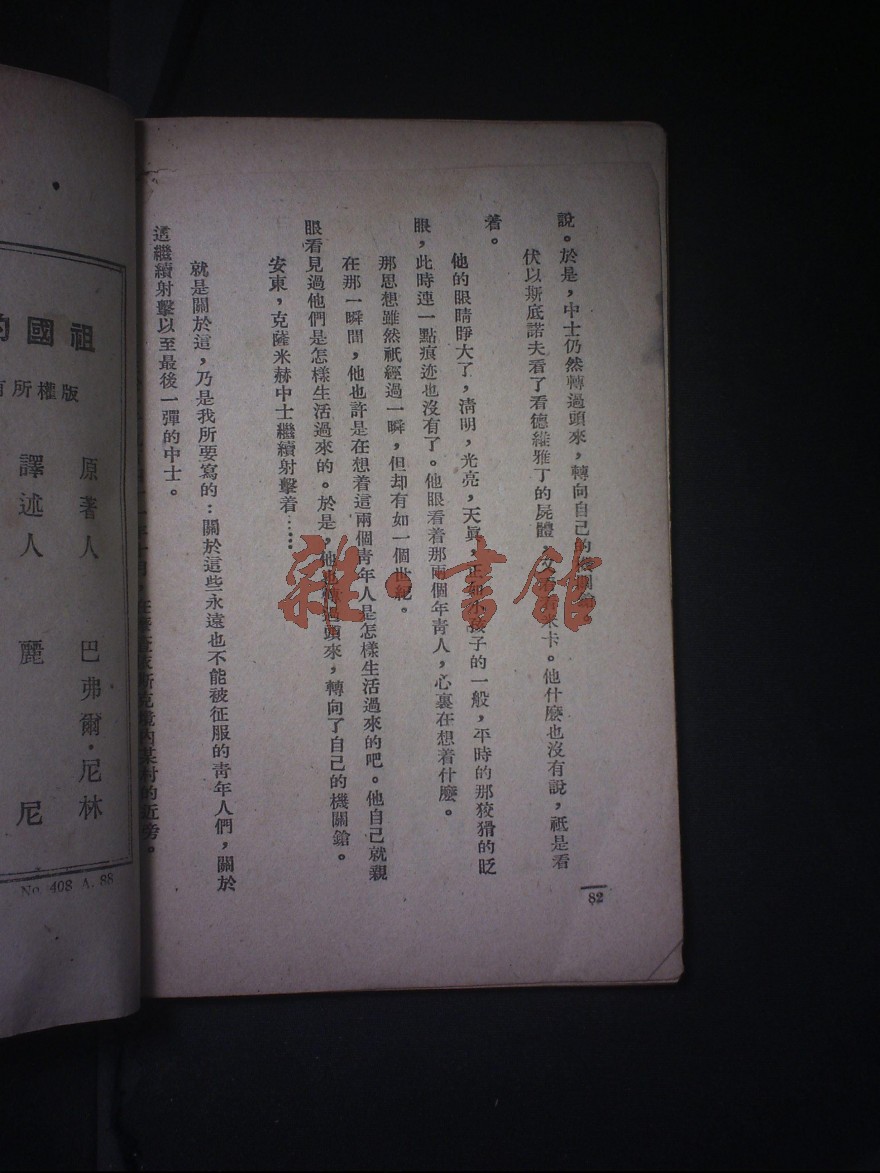 說。於是，中士仍然轉過頭來，轉向自己的機關鎗
伏以斯底諾夫看了看德維雅丁的屍體，米卡。他什麼也沒有說，祗是看
着。
他的眼睛睜大了，淸明，光亮，天眞，正如小孩子的一般，平時的那狡猾的眨
眼，此時連一點痕迹也沒有了。他眼看着那兩個年靑人，心裏在想着什麼。
那思想雖然祇經過一瞬，但却有如一個世紀。
在那一瞬間，他也許是在想着這兩個靑年人是怎樣生活過來的吧。他自己就親
眼看見過他們是怎樣生活過來的。於是，他也轉過頭來，轉向了自己的機關鎗。
安東，克薩米赫中士繼續射擊着……
就是關於這，乃是我所要寫的：關於這些永遠也不能被征服的靑年人們，關於
這繼續射擊以至最後一彈的中士。
斯克境內某村的近傍。
82
雜·書館
祖國的
版權所有
原著人 巴弗爾·尼林
譯述人 麗尼
No. 408 A. 88